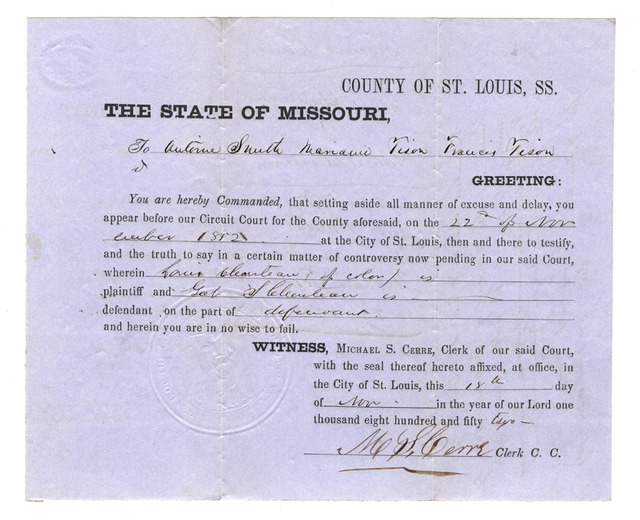 COUNTY OF ST. LOUIS, SS.
THE STATE OF MISSOURI,
To Antoine Smith Mariane Tison Francis Tison
GREETING:
You are hereby Commanded, that setting aside all manner of excuse and delay, you
appear before our Circuit Court for the County aforesaid, on the 22nd of Nov
ember 1852 at the City of St. Louis, then and there to testify,
and the truth to say in a certain matter of controversy now pending in our said Court,
wherein Louis Chouteau (of color) is
plaintiff and Gab S Chouteau is
defendant on the part of defendant
and herein you are in no wise to fail.
WITNESS, MICHAEL S. CERRE, Clerk of our said Court,
with the seal thereof hereto affixed, at office, in
the City of St. Louis, this 18th day
of Nov in the year of our Lord one
thousand eight hundred and fifty two
M S Cerre Clerk C. C.